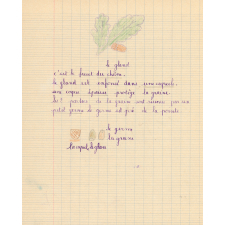 le gland
c'est le fruit du chêne.
le gland est enfermé dans une cupule.
une cupe épaisse protège la graine.
les parties de la graine sont réunies par un
petit germe le germe est formé de la
le germe
la graine
la cupule le gland